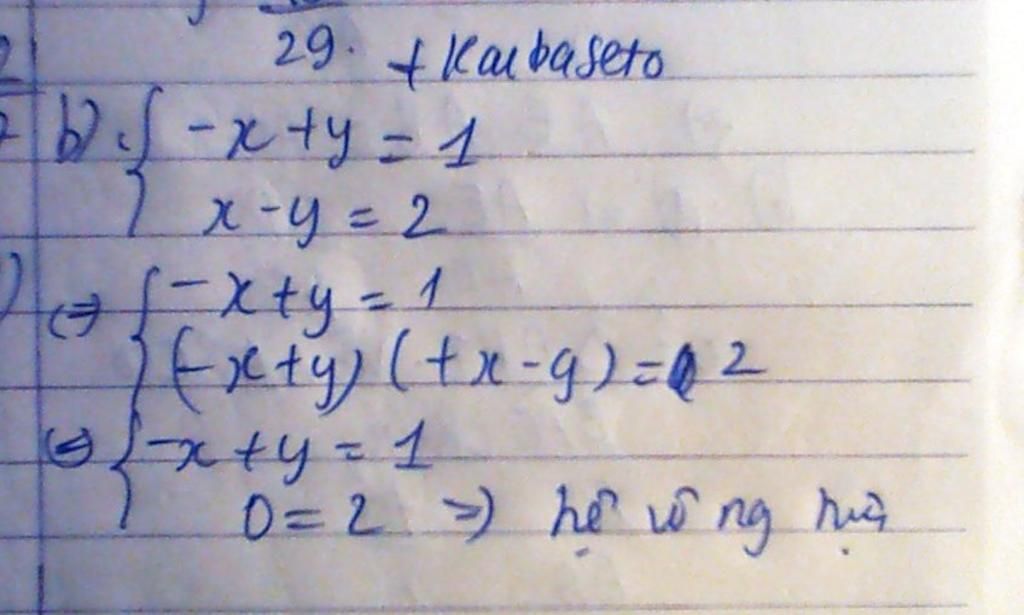 29. + Kaibaseto
b) { -x + y = 1
x - y = 2
<=> { -x + y = 1
(-x + y) (+x - y) = 2
<=> { -x + y = 1
0 = 2 => hệ vô ng